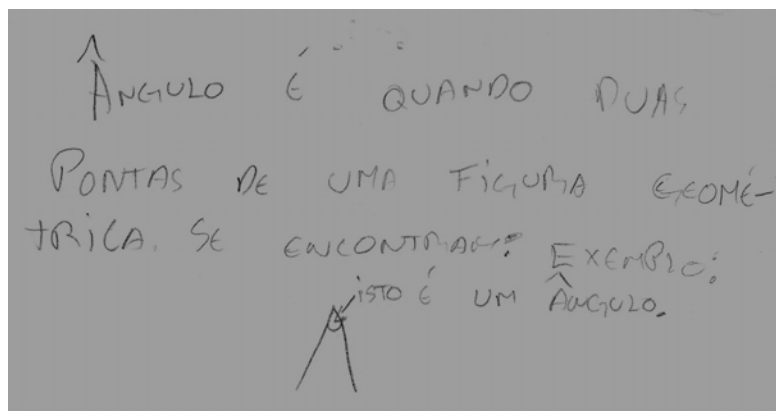 ÂNGULO É QUANDO DUAS
PONTAS DE UMA FIGURA GEOMÉ-
TRICA. SE ENCONTRAM: EXEMPLO:
ISTO É UM ÂNGULO.